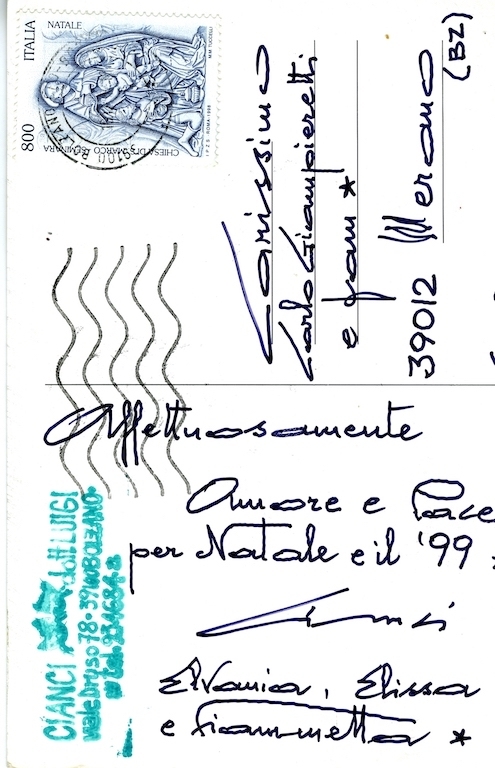 ITALIA
NATALE
800
CHIESA DI S. MARCO SEMINARA
39100 BOLZANO
Carissimo
Carlo Giampieretti
e fam *
39012 Merano
(BZ)
Affettuosamente
Amore e Pace
per Natale e il '99 *
Elvania, Elissa
e Fiammetta *
CIANCI dott. LUIGI
viale Druso 78 · 39100 BOLZANO ·